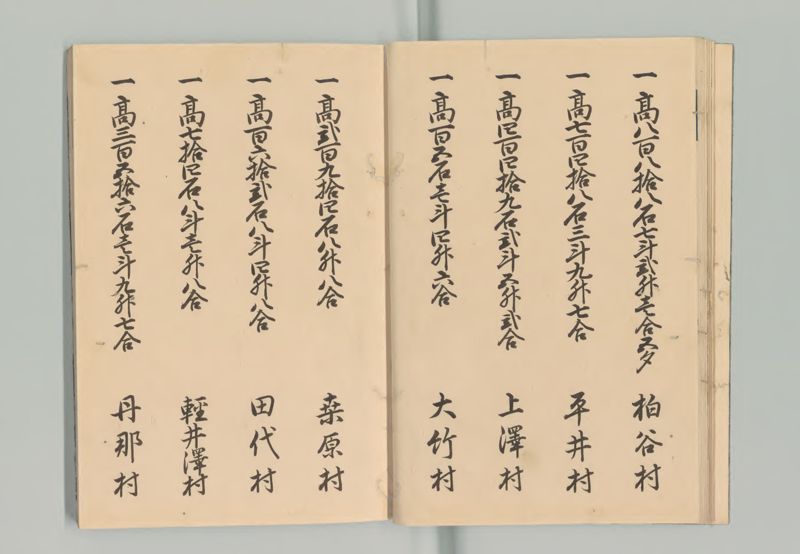 一高八百八拾八石七斗弐升壱合五夕 柏谷村
一高七百四拾八石三斗九升七合 平井村
一高四百四拾九石弐斗五升弐合 上澤村
一高百五石壱斗四升六合 大竹村
一高弐百九拾四石八升八合 桒原村
一高百六拾弐石八斗四升八合 田代村
一高七拾四石八斗壱升八合 輕井澤村
一高三百五拾六石壱斗九升七合 丹那村